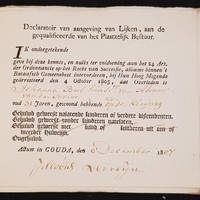 Declaratoir van aangeving van Lijken, aan de
gequalificeerde van het Plaatzelijk Bestuur.
IK ondergetekende
geve bij deze kennis, en zulks ter voldoening aan het 24 Art.
der Ordonnantie op het Recht van Successie, alömme binnen't
Bataafsch Gemeenebest intevoorderen, bij Hun Hoog Mogende
geärresteerd den 4 October 1805, dat Overleden is
Johanna
van der
oud 31 Jaren, gewoond hebbende
Gehuuwd geweest nalatende kinderen of verdere inferdenten.
Gehuuwd geweest zonder kinderen natelaten.
Gehuuwd geweest met kind of kinderen uit een of
meerder Huwelijk.
Ongehuuwd.
Actum in GOUDA, den 8 December 1807
Jacobus Verreijn